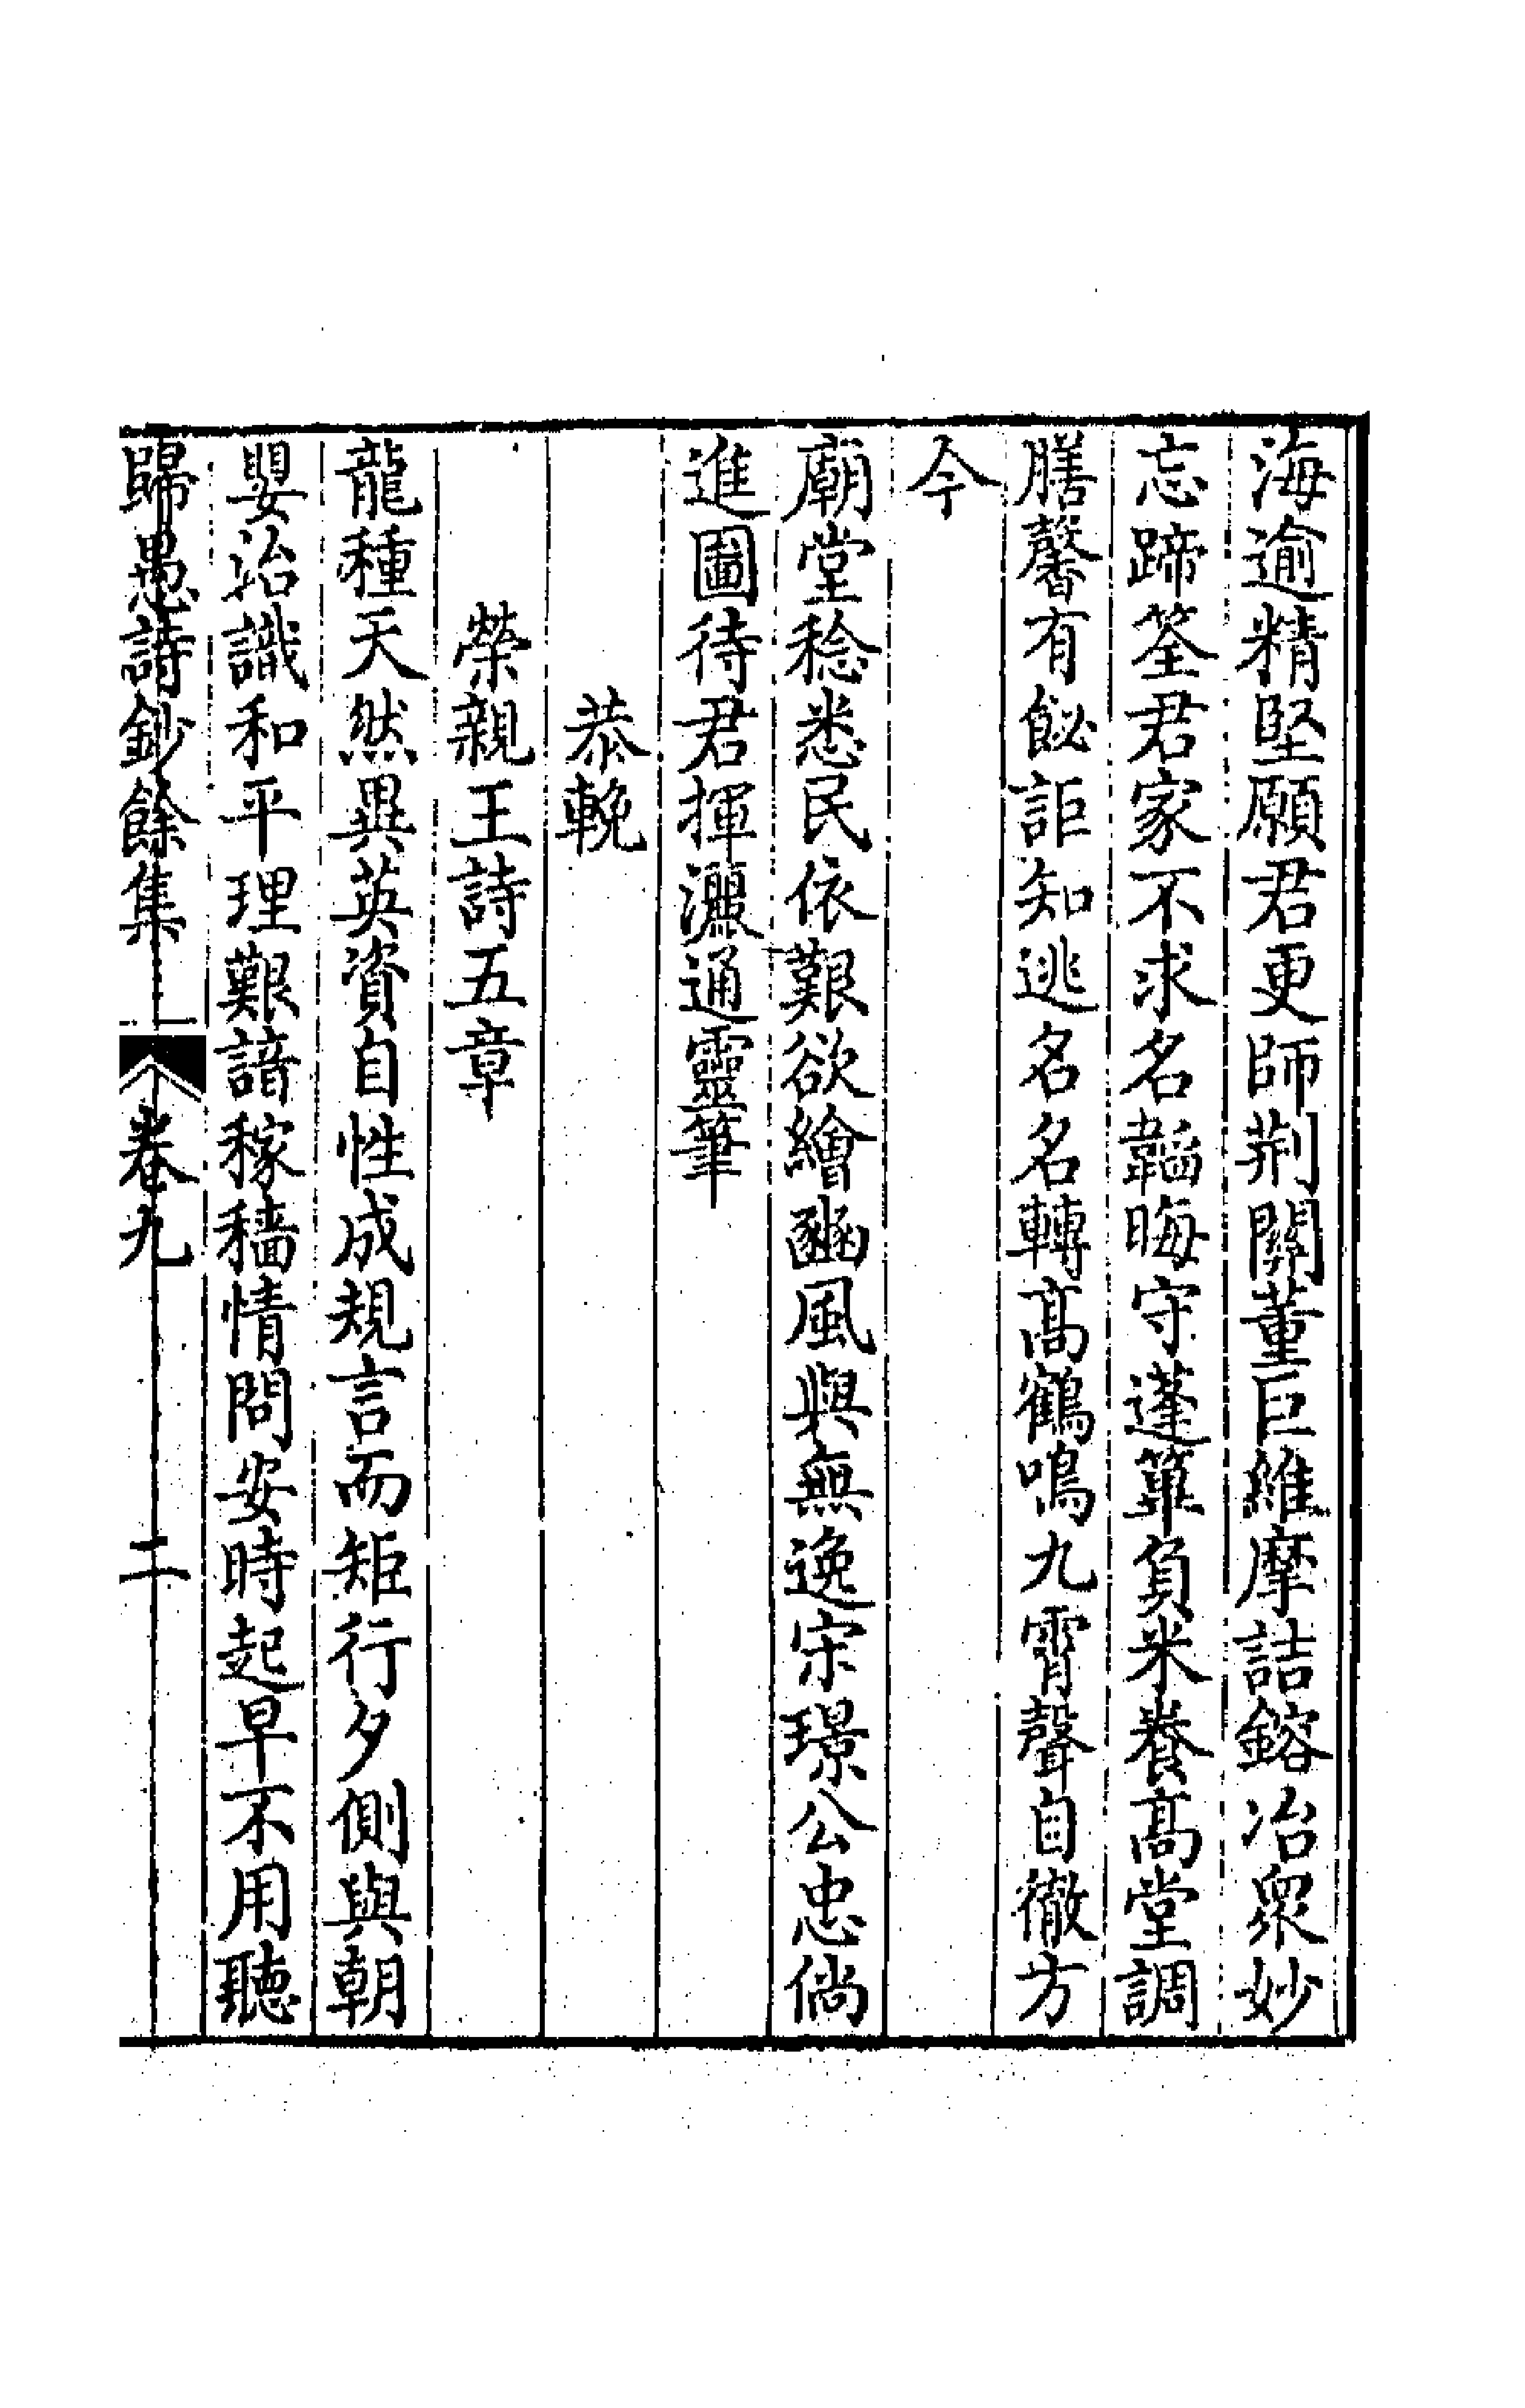 海逾精堅願君更師荆關董巨維摩詰鎔冶衆妙
忘蹄筌君家不求名韜晦守蓬篳負米養高堂調
膳馨有飶詎知逃名名轉高鶴鳴九霄聲自徹方
今
廟堂稔悉民依艱欲繪豳風與無逸宋璟公忠倘
進圖待君揮灑通靈筆
恭輓
榮親王詩五章
龍種天然異英資自性成規言而矩行夕側與朝
嬰治識和平理艱諳稼穡情問安時起早不用聽
歸愚詩鈔餘集 卷九 二